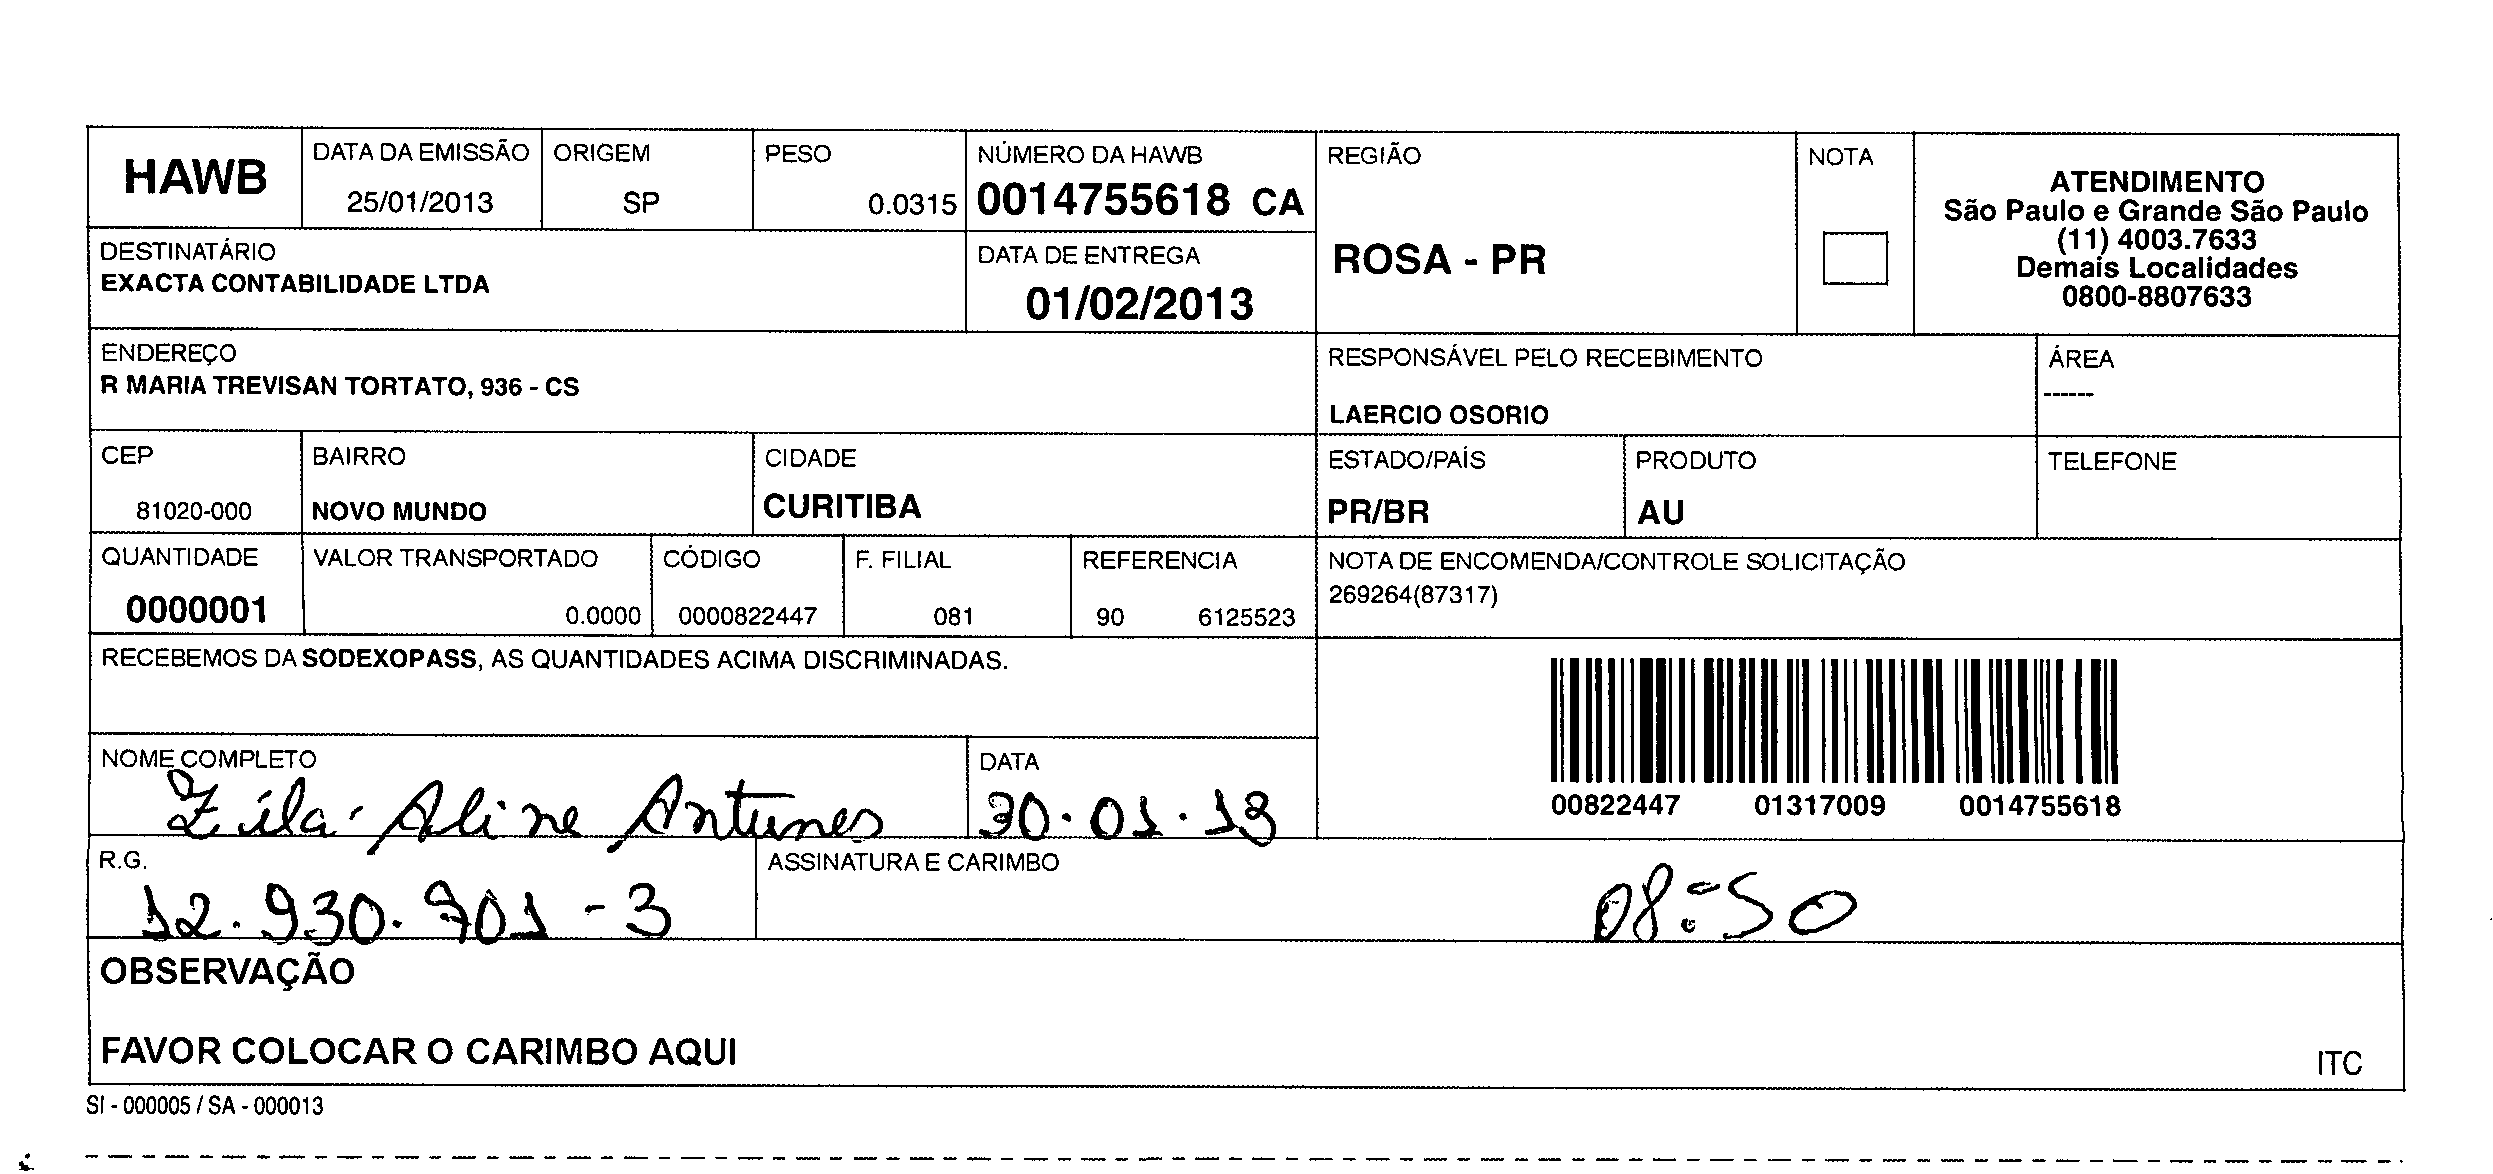 HAWB
DATA DA EMISSÃO
25/01/2013
ORIGEM
SP
PESO
0.0315
NÚMERO DA HAWB
0014755618 CA
REGIÃO
ROSA - PR
NOTA
ATENDIMENTO
São Paulo e Grande São Paulo
(11) 4003.7633
Demais Localidades
0800-8807633
DESTINATÁRIO
EXACTA CONTABILIDADE LTDA
DATA DE ENTREGA
01/02/2013
ENDEREÇO
R MARIA TREVISAN TORTATO, 936 - CS
RESPONSÁVEL PELO RECEBIMENTO
LAERCIO OSORIO
ÁREA
------
CEP
81020-000
BAIRRO
NOVO MUNDO
CIDADE
CURITIBA
ESTADO/PAÍS
PR/BR
PRODUTO
AU
TELEFONE
QUANTIDADE
0000001
VALOR TRANSPORTADO
0.0000
CÓDIGO
0000822447
F. FILIAL
081
REFERENCIA
90 6125523
NOTA DE ENCOMENDA/CONTROLE SOLICITAÇÃO
269264(87317)
RECEBEMOS DA SODEXOPASS, AS QUANTIDADES ACIMA DISCRIMINADAS.
00822447 01317009 0014755618
NOME COMPLETO
Aline Antunes
DATA
30.01.13
R.G.
12.930.901-3
ASSINATURA E CARIMBO
08:50
OBSERVAÇÃO
FAVOR COLOCAR O CARIMBO AQUI
ITC
SI - 000005 / SA - 000013